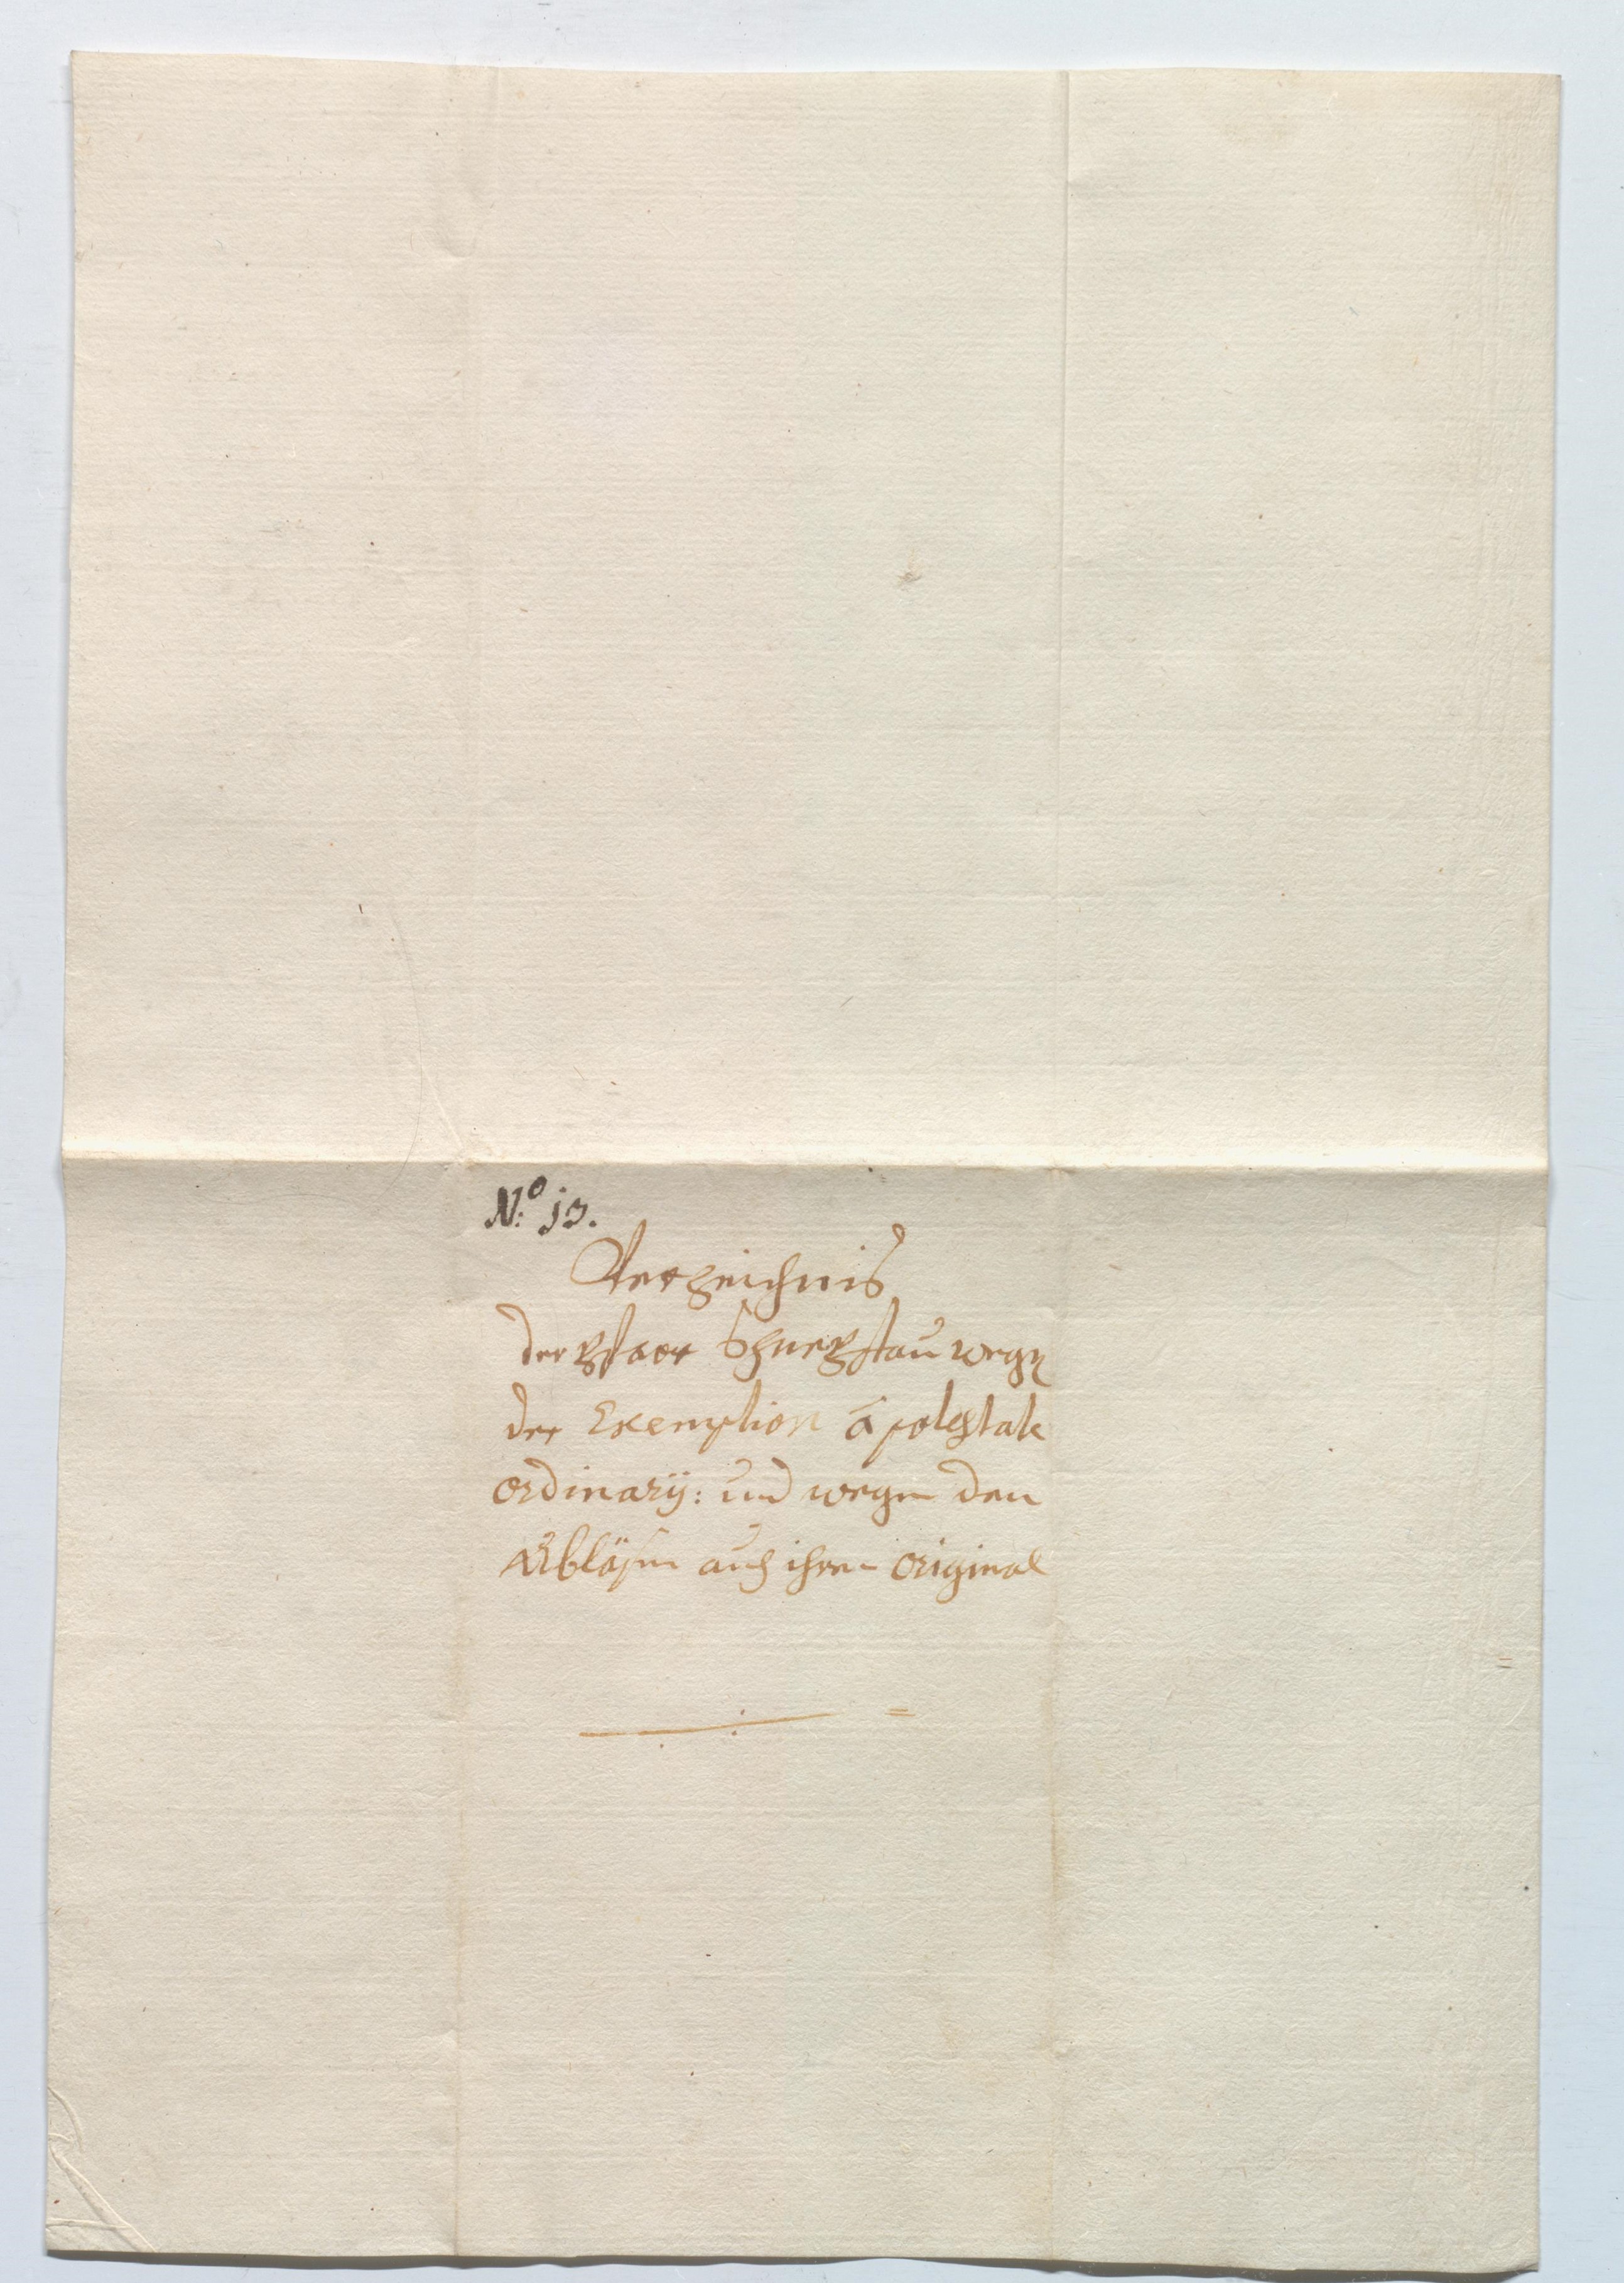 N:o 13.
Verzeichnis
der Pfarr wegen
der Exemption â potestate
ordinarij: und wegen den
Abläsen auch ihren original